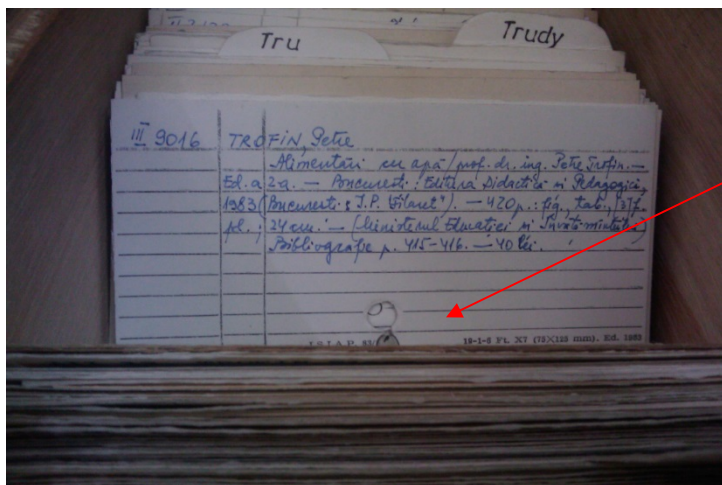 Tru
Trudy
III 9016 TROFIN, Petre
Alimentări cu apă / prof. dr. ing. Petre Trofin. —
Ed. a 2-a. — București : Editura Didactică și Pedagogică,
1983 (București : I. P. "Filaret"). — 420 p. : fig., tab., [3] f.
pl. ; 24 cm. — (Ministerul Educației și Învățămîntului)
Bibliografie p. 415-416. — 40 lei.
19-1-6 Ft. X7 (75X125 mm). Ed.